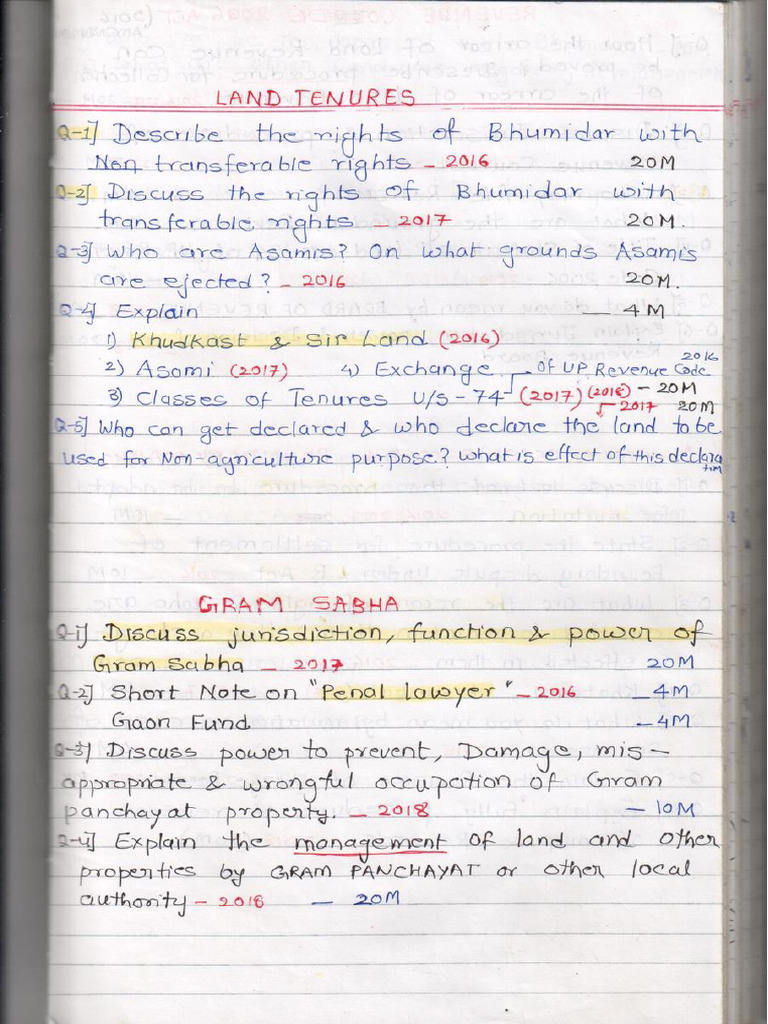 LAND TENURES
Q-1] Describe the rights of Bhumidar with
Non transferable rights - 2016 20M
Q-2] Discuss the rights of Bhumidar with
transferable rights - 2017 20M.
Q-3] Who are Asamis? On what grounds Asamis
are ejected? - 2016 20M.
Q-4] Explain — 4M
1) Khudkast & Sir Land (2016)
2) Asomi (2017) 4) Exchange Of UP. Revenue Code 2016
3) Classes of Tenures U/S-74 (2017) (2018) - 20M
2017 20M
Q-5] Who can get declared & who declare the land to be
used for Non-agriculture purpose? What is effect of this declaration
GRAM SABHA
Q-1] Discuss jurisdiction, function & power of
Gram Sabha - 2017 20M
Q-2] Short Note on "Penal lawyer" - 2016 - 4M
Gaon Fund - 4M
Q-3] Discuss power to prevent, Damage, mis-
appropriate & wrongful occupation of Gram
panchayat property. - 2018 - 10M
Q-4] Explain the management of land and other
properties by GRAM PANCHAYAT or other local
authority - 2018 - 20M